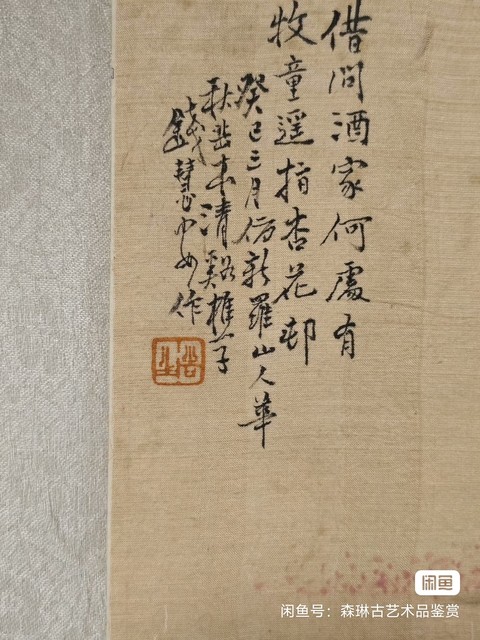 借問酒家何處有
牧童遥指杏花邨
癸巳三月仿新羅山人華
秋岳本清谿樵子
錢慧安作
吉生
闲鱼
闲鱼号：森琳古艺术品鉴赏